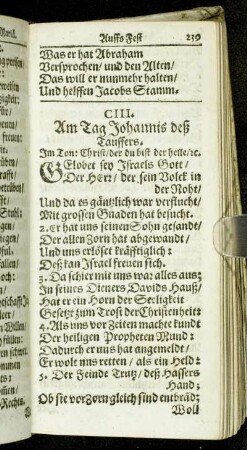 Auffs Fest 239
Was er hat Abraham
Versprochen/ und den Alten/
Das will er nunmehr halten/
Und helffen Jacobs Stamm.
CIII.
Am Tag Johannis deß
Tauffers.
Im Ton: Christ/ der du bist der helle/ec.
GElobet sey Israels Gott/
Der Herr/ der sein Volck in
der Noht/
Und da es gäntzlich war verflucht/
Mit grossen Gnaden hat besucht.
2. Er hat uns seinen Sohn gesandt/
Der allen Zorn hat abgewandt/
Und uns erlöset kräfftiglich:
Deß kan Israel freuen sich.
3. Da schier mit uns war alles aus:
In seines Dieners Davids Hauß/
Hat er ein Horn der Seeligkeit
Gesetzt zum Trost der Christenheit:
4. Als uns vor Zeiten machte kundt
Der heiligen Propheten Mund:
Dadurch er uns hat angemeldt/
Er wolt uns retten/ als ein Held:
5. Der Feinde Trutz/ deß Hassers
Hand;
Ob sie vor Zorn gleich sind entbräd;
Woll